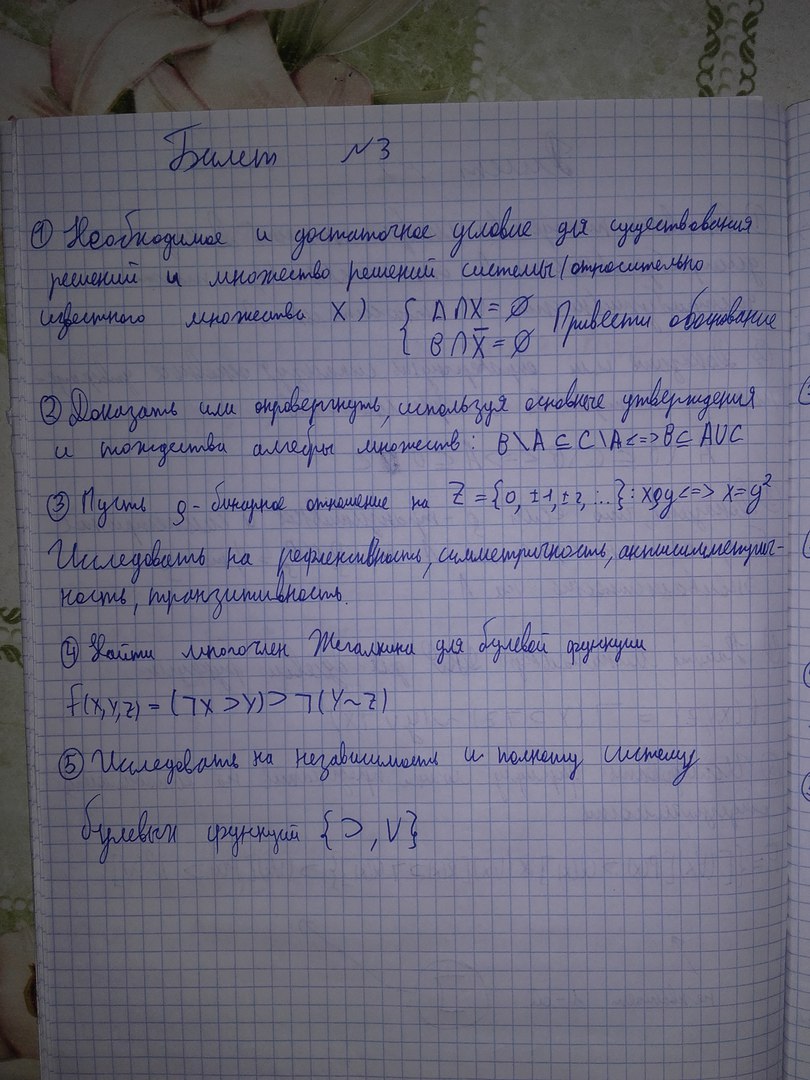 Билет №3
① Необходимое и достаточное условие для существования
решений и множество решений системы (относительно
известного множества X) { A∩X=∅ Привести обоснование
B∩X̅=∅
② Доказать или опровергнуть, используя основные утверждения
и тождества алгебры множеств: B\A⊆C\A<=>B⊆A∪C
③ Пусть ρ-бинарное отношение на Z={0, ±1, ±2, ...}: xρy<=>x=y²
Исследовать на рефлексивность, симметричность, антисимметрич-
ность, транзитивность.
④ Найти многочлен Жегалкина для булевой функции
f(X,Y,Z) = (¬X⊃Y)⊃¬(Y~Z)
⑤ Исследовать на независимость и полноту систему
булевых функций {⊃, V}